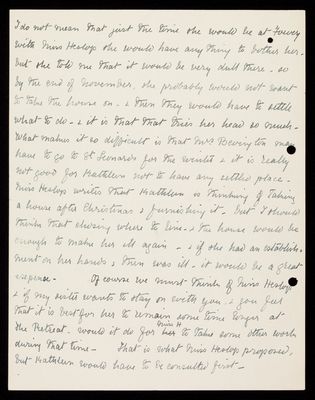 I do not mean that just the time she would be at Fowey
with Miss Heslop she would have any thing to bother her.
but she told me that it would be very dull there. so
by the end of November. she probably would not want
to take the house on. & then they would have to settle
what to do. & it is that that tries her head so much.
What makes it so difficult is that Mrs Bevington may
have to go to St Leonards for the winter & it is really
not good for Kathleen not to have any settled place.
Miss Heslop writes that Kathleen is thinking of taking
a house after Christmas & furnishing it. but I should
think that choosing where to live. & the house would be
enough to make her ill again. & if she had an establish-
ment on her hands & then was ill. it would be a great
expense. Of course we must think of Miss Heslop
& if my sister wants to stay on with you. & you feel
that it is best for her to remain some time longer at
the Retreat. would it do for Miss H. to take some other work
during that time. That is what Miss Heslop proposed,
but Kathleen would have to be consulted first.